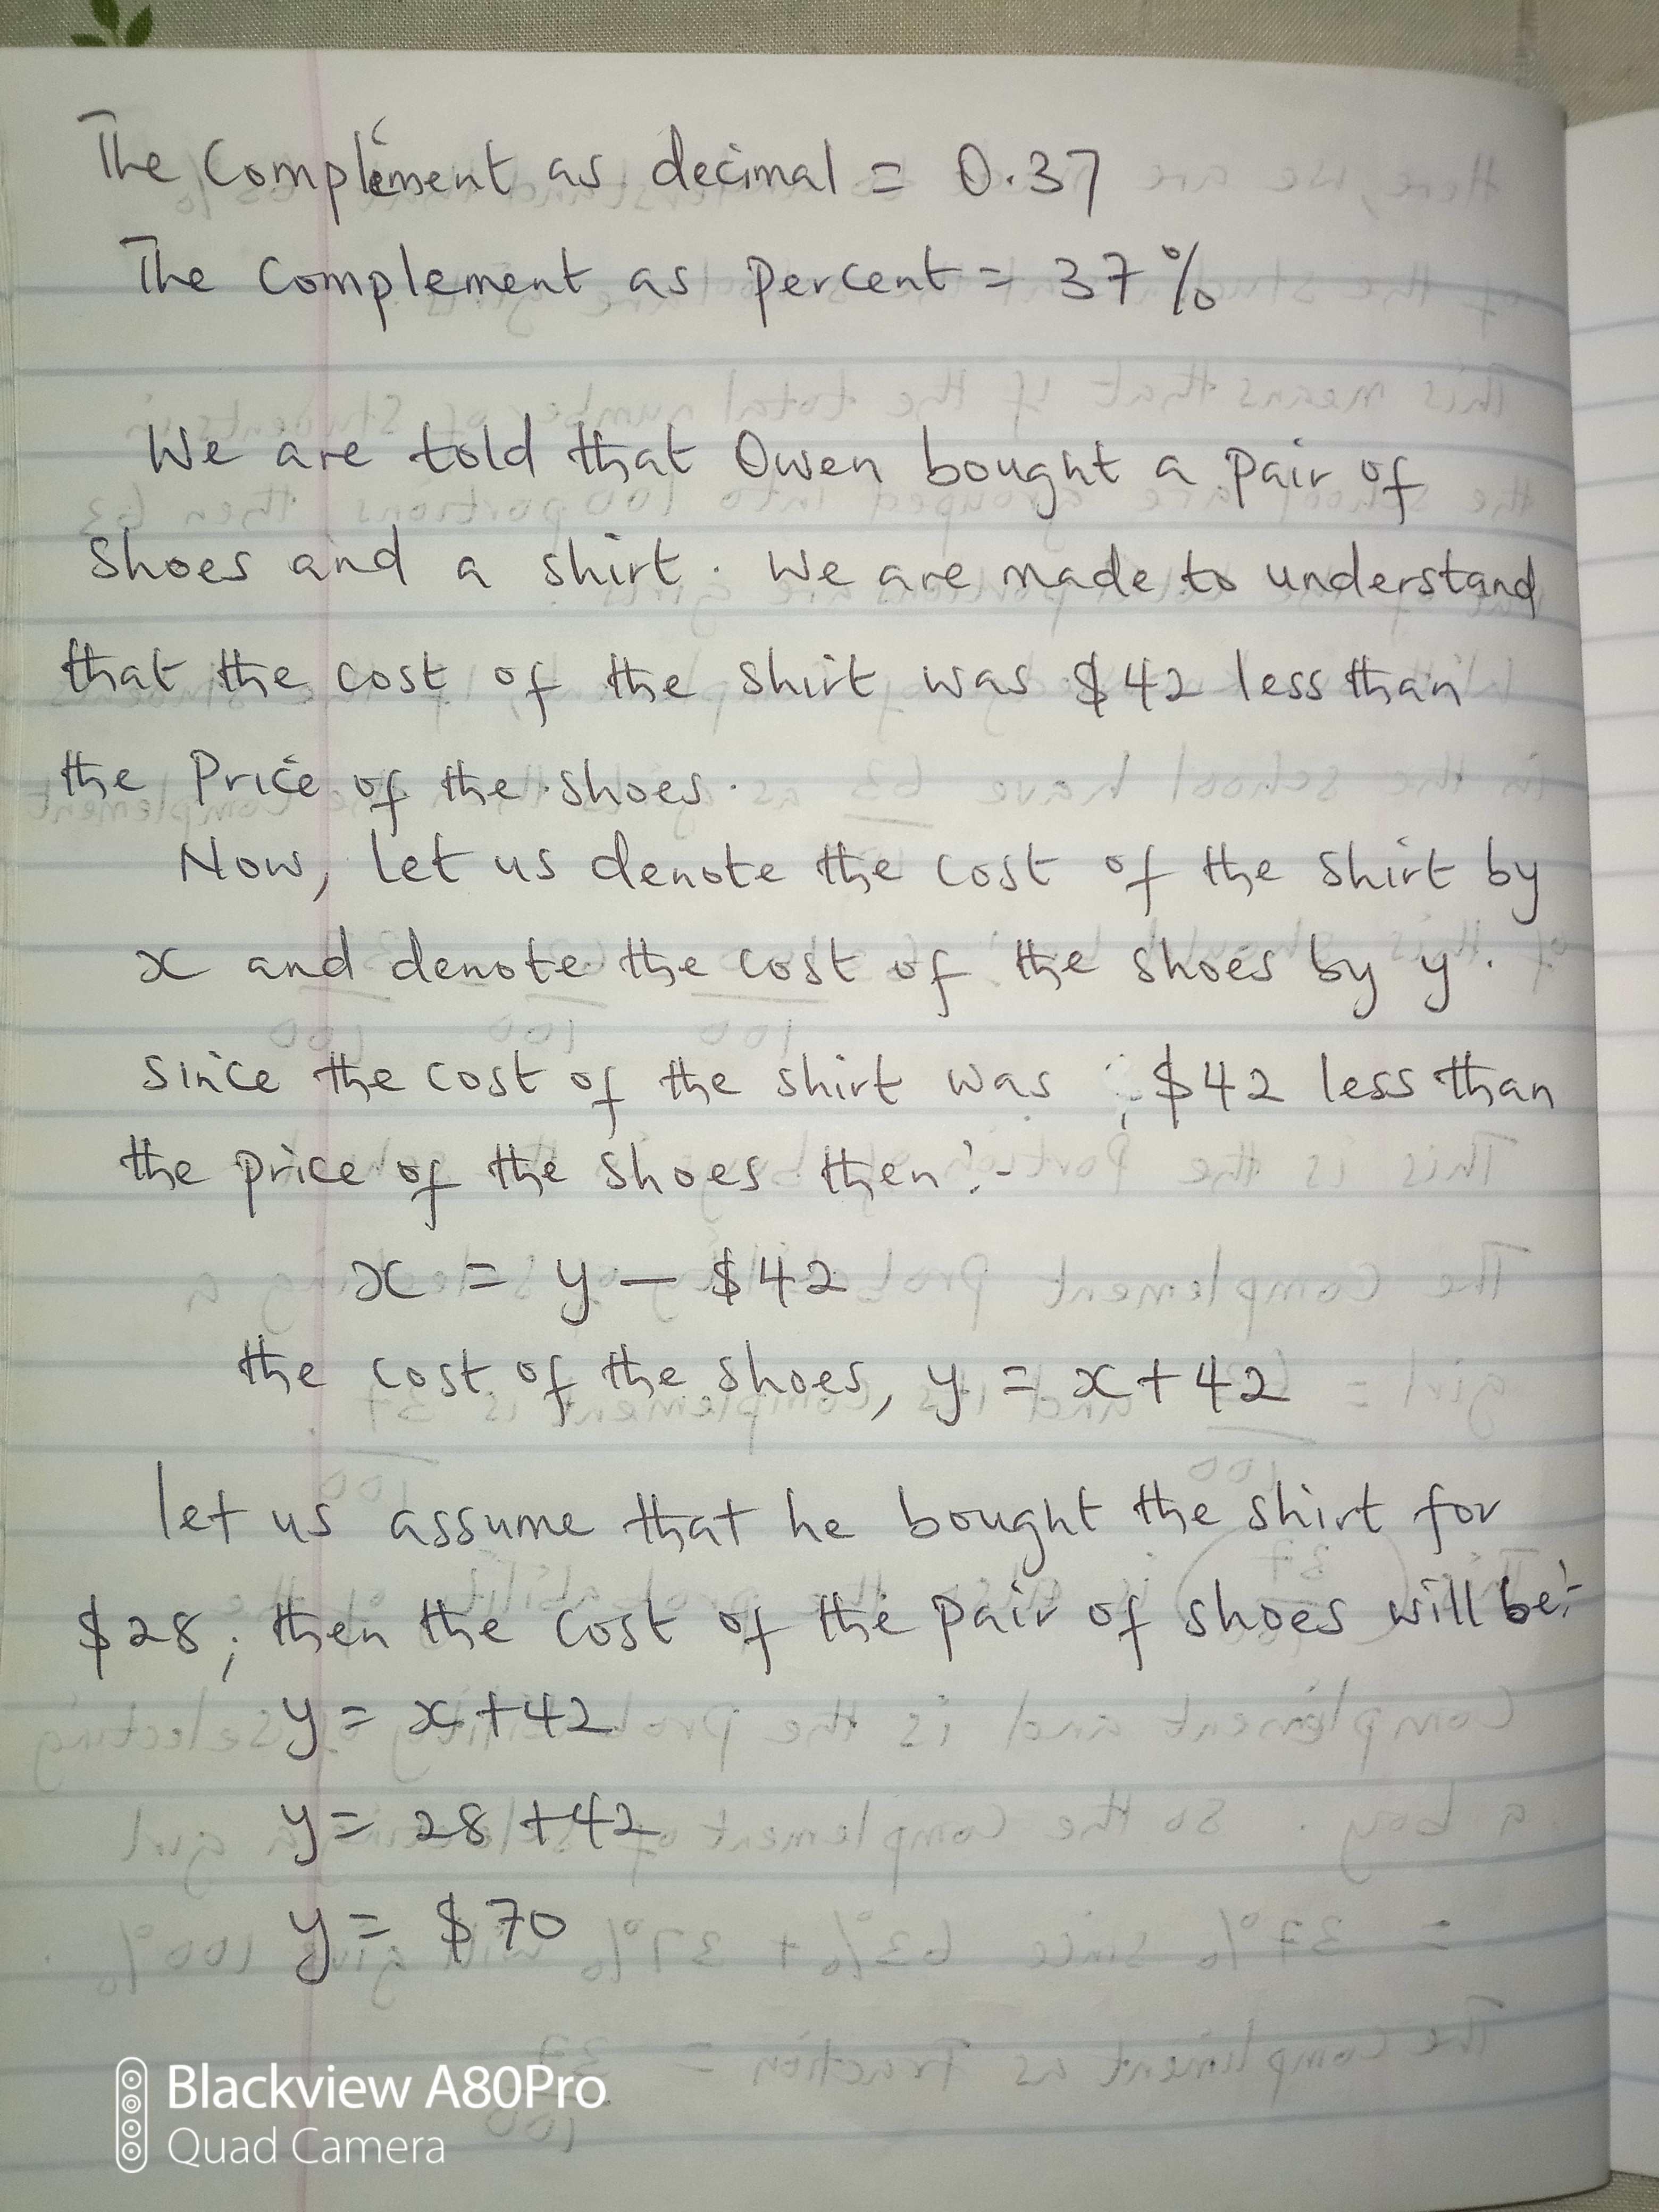 The Complement as decimal = 0.37
The Complement as percent = 37%
We are told that Owen bought a pair of
shoes and a shirt. We are made to understand
that the cost of the shirt was $42 less than
the Price of the shoes.
Now, let us denote the cost of the shirt by
x and denote the cost of the shoes by y.
Since the cost of the shirt was $42 less than
the price of the shoes then:-
x = y - $42
the cost of the shoes, y = x+42
let us assume that he bought the shirt for
$28, then the cost of the pair of shoes will be:-
y = x+42
y = 28 +42
y = $70
Blackview A80Pro
Quad Camera